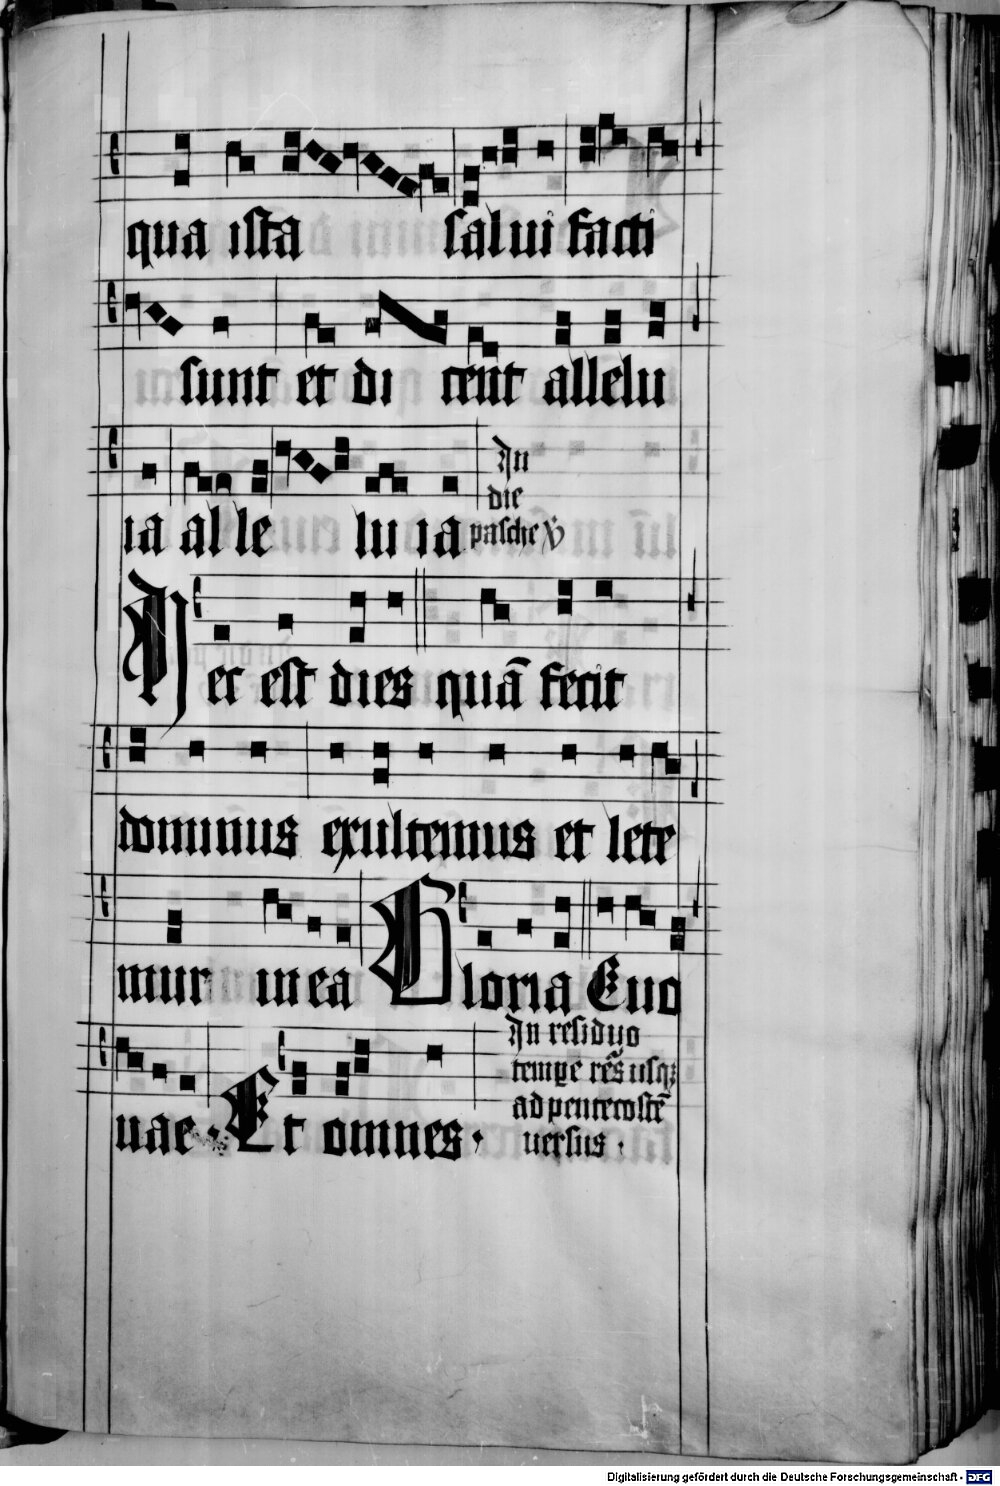 qua ista salui facti
sunt et di cent allelu
ia al le lu ia
In
die
pasche v̄
Hec est dies quā fecit
dominus exultemus et lete
mur in ea Gloria Euo
uae · Et omnes ·
In residuo
tempe res̄ usqꝫ
ad pentecostē
uersus ·
Digitalisierung gefördert durch die Deutsche Forschungsgemeinschaft - DFG